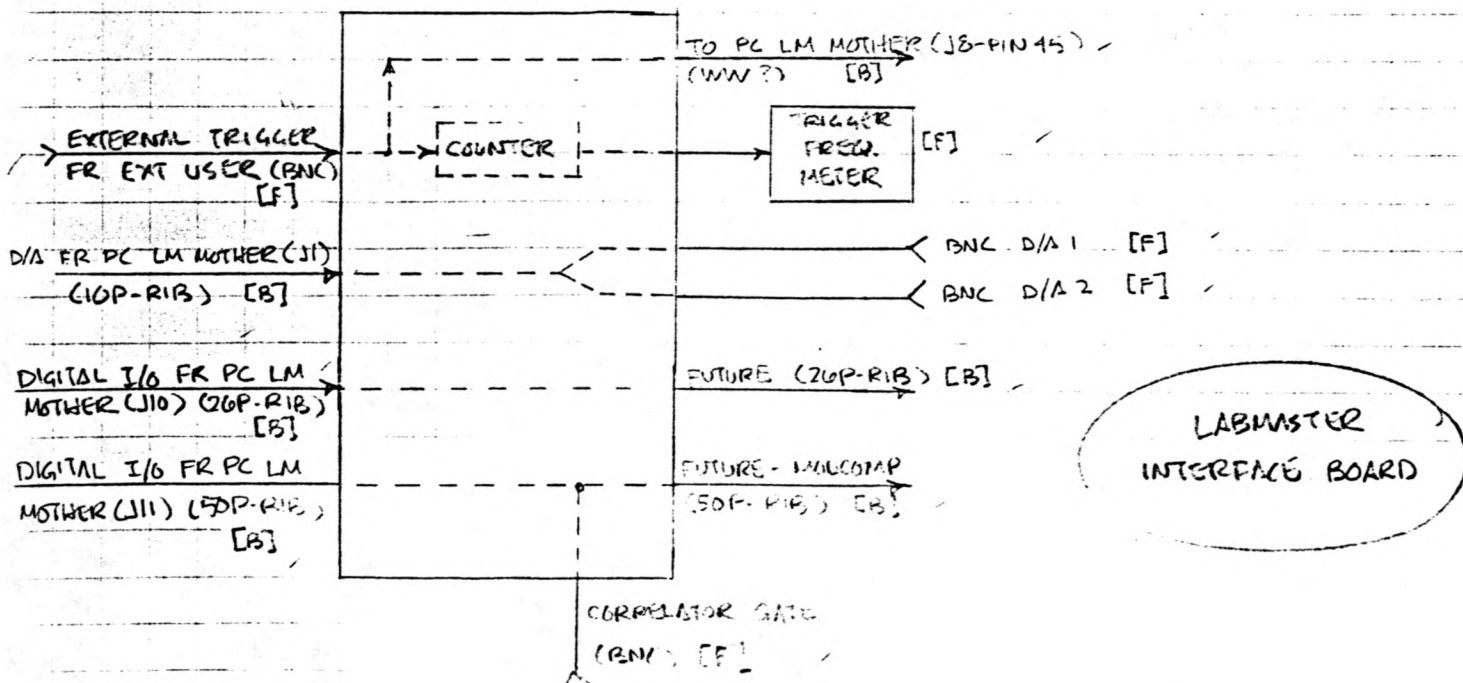 TO PC LM MOTHER (J8-PIN 45)
(WW?) [B]
EXTERNAL TRIGGER
FR EXT USER (BNC)
[F]
COUNTER
TRIGGER
FREQ.
METER
[F]
D/A FR PC LM MOTHER (J1)
(10P-RIB) [B]
BNC D/A 1 [F]
BNC D/A 2 [F]
DIGITAL I/O FR PC LM
MOTHER (J10) (26P-RIB)
[B]
FUTURE (26P-RIB) [B]
DIGITAL I/O FR PC LM
MOTHER (J11) (50P-RIB)
[B]
FUTURE - MOLCOMP
(50P-RIB) [B]
LABMASTER
INTERFACE BOARD
CORRELATOR GATE
(BNC) [F]